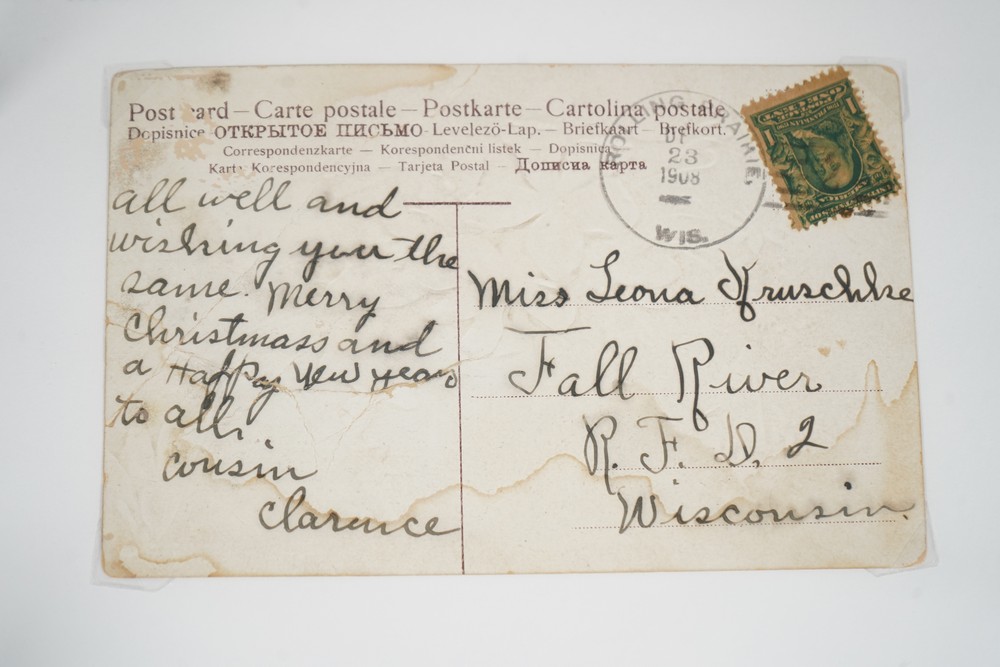 Post card – Carte postale – Postkarte – Cartolina postale
Dopisnice ОТКРЫТОЕ ПИСЬМО - Levelező-Lap. – Briefkaart – Brefkort.
Correspondenzkarte – Korespondenčni listek – Dopisnica
Karta Korespondencyjna – Tarjeta Postal – Дописна карта
ROLLING PRAIRIE,
23
1908
WIS.
all well and
wishing you the
same. Merry
Christmass and
a Happy New Year
to all.
cousin
Clarence
Miss Leona Kruschke
Fall River
R. F. D. 2
Wisconsin.
1
1